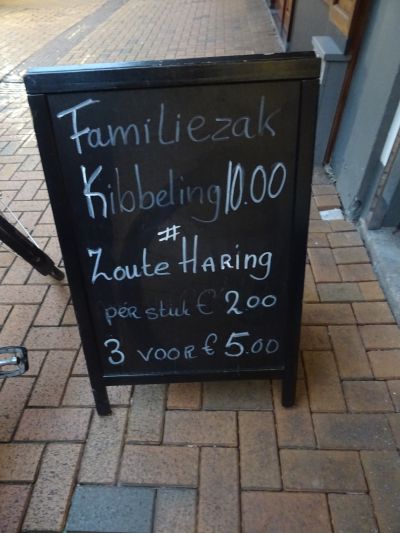 Familiezak
Kibbeling 10.00
#
Zoute HARING
per stuk € 2.00
3 VOOR € 5.00